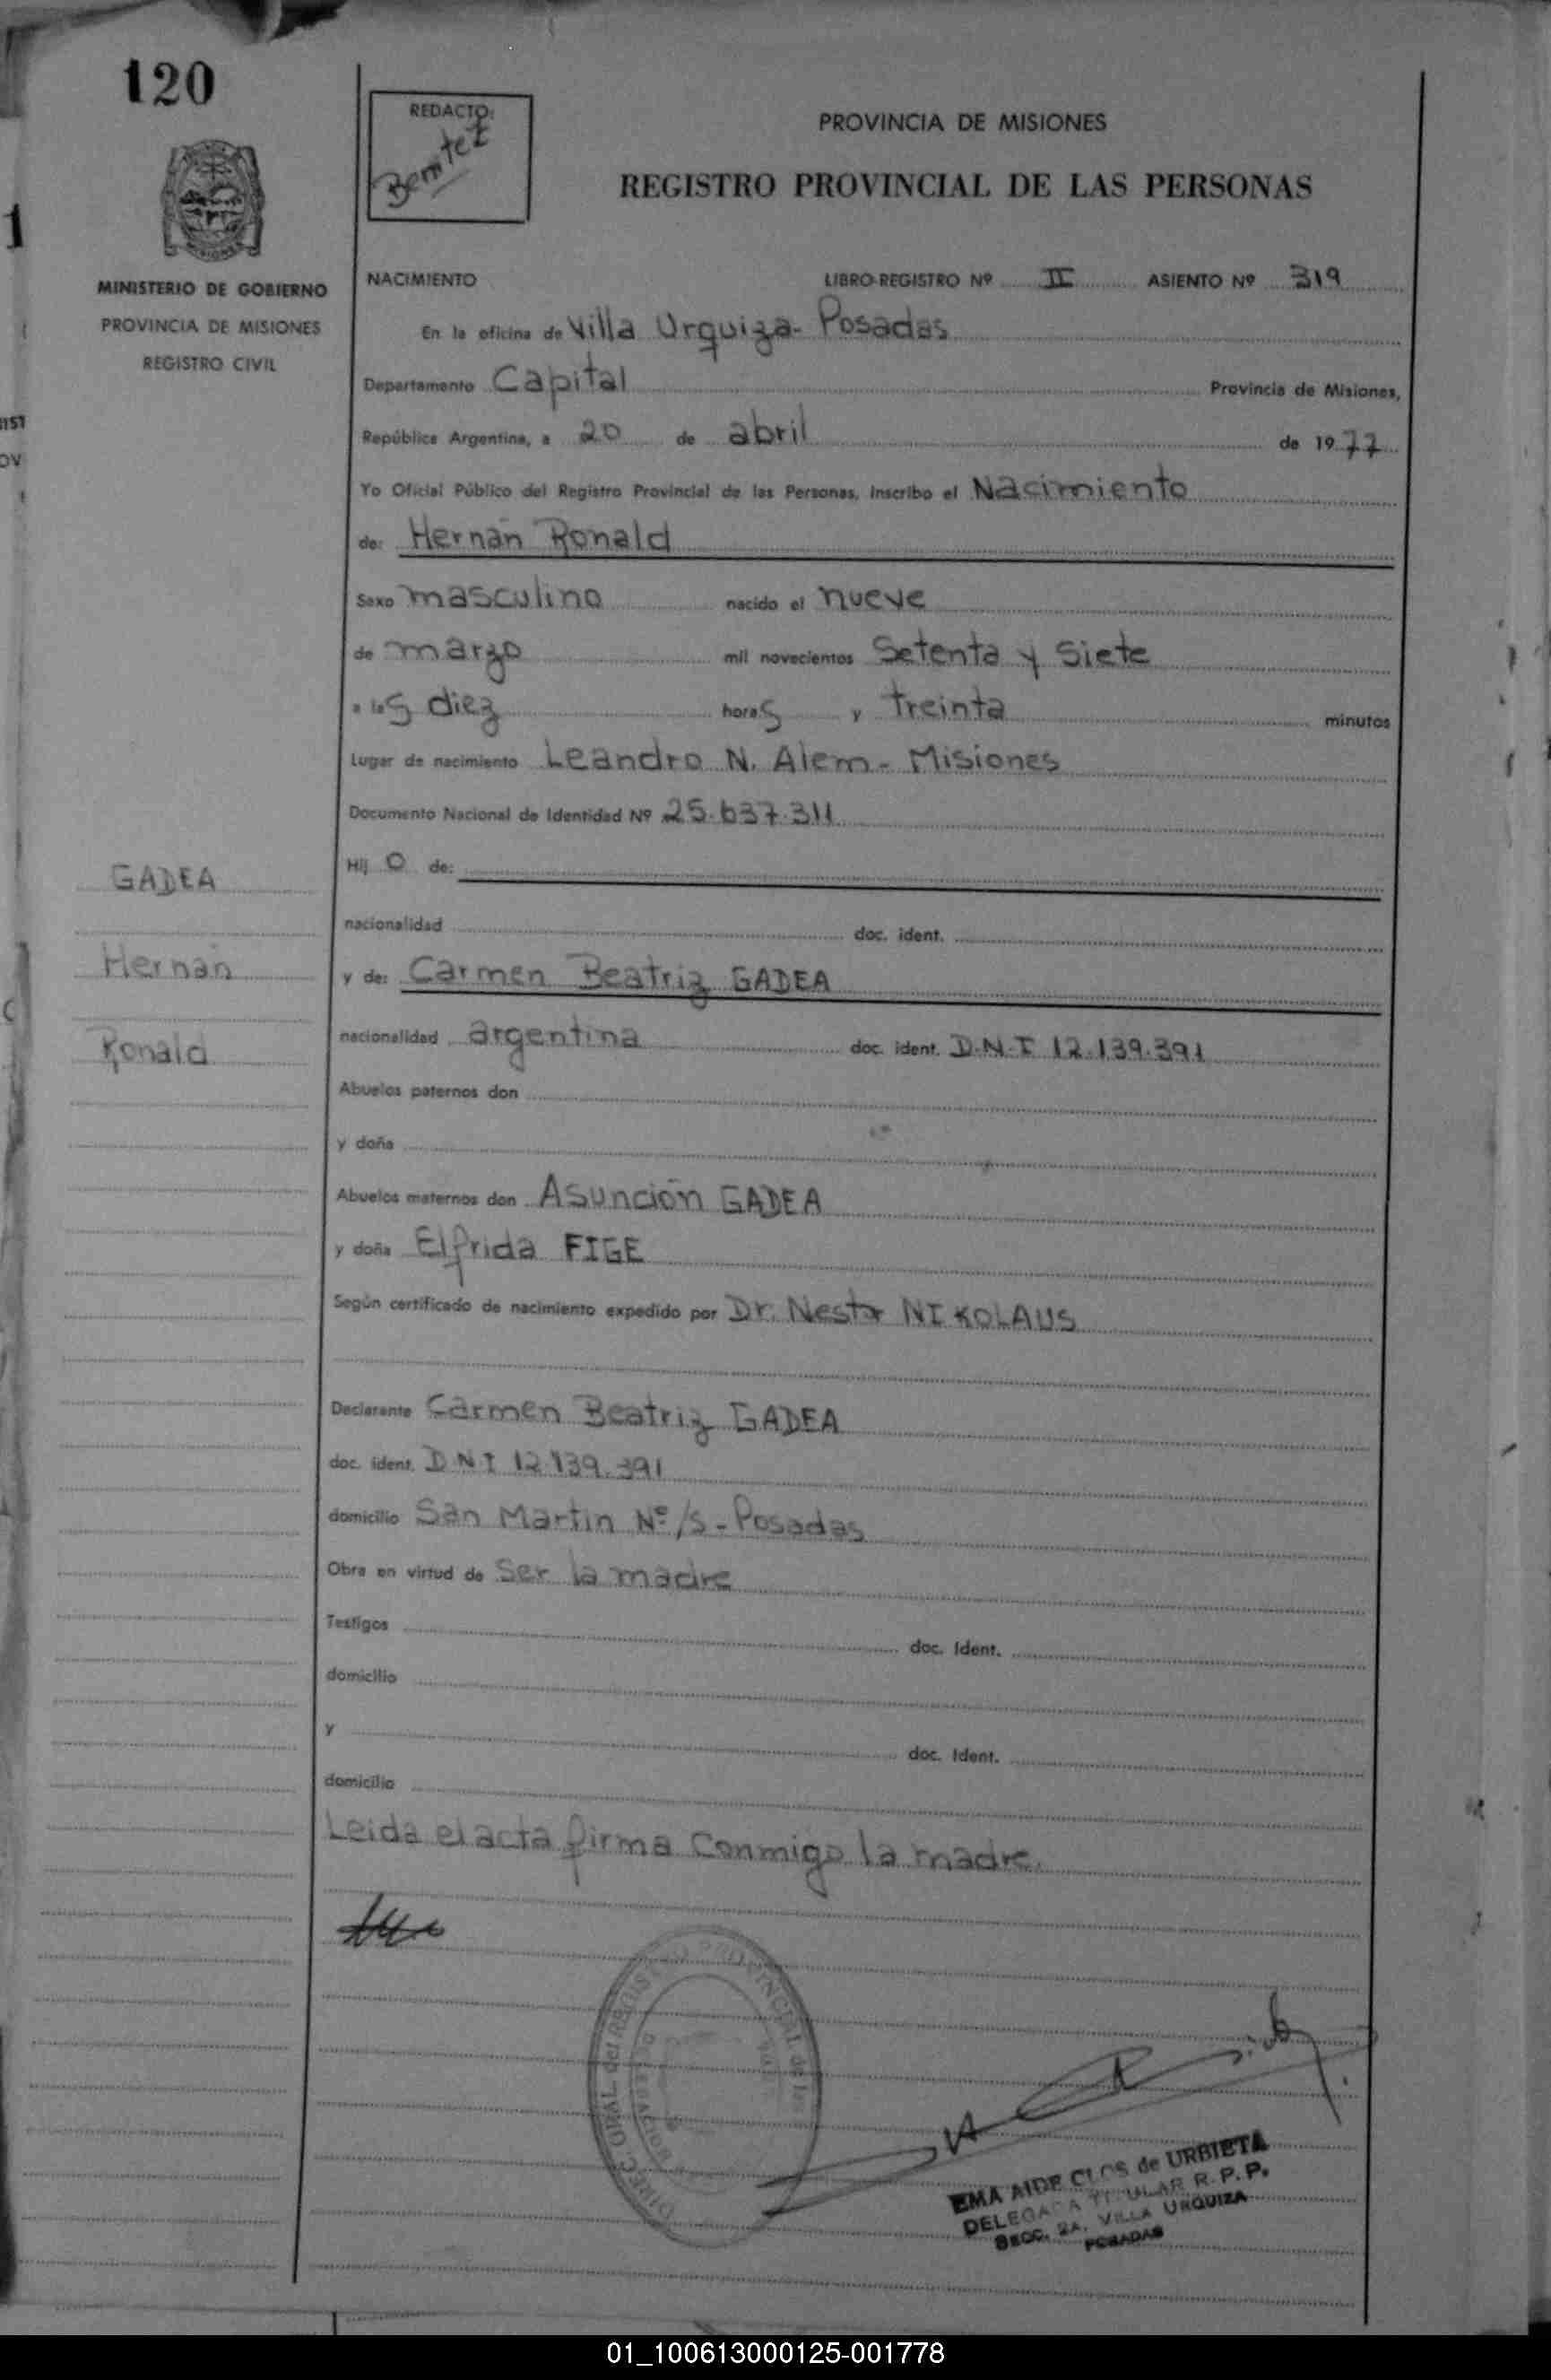 120
REDACTO:
Benitez
PROVINCIA DE MISIONES
REGISTRO PROVINCIAL DE LAS PERSONAS
1
MINISTERIO DE GOBIERNO
PROVINCIA DE MISIONES
REGISTRO CIVIL
NACIMIENTO LIBRO-REGISTRO Nº II ASIENTO Nº 319
En la oficina de Villa Urquiza - Posadas
Departamento Capital Provincia de Misiones,
República Argentina, a 20 de abril de 1977
Yo Oficial Público del Registro Provincial de las Personas, Inscribo el Nacimiento
de: Hernán Ronald
Sexo masculino nacido el nueve
de marzo mil novecientos Setenta y Siete
a las diez horas y treinta minutos
Lugar de nacimiento Leandro N. Alem - Misiones
Documento Nacional de Identidad Nº 25.637.311
Hij o de:
GADEA
nacionalidad doc. ident.
Hernán
y de: Carmen Beatriz GADEA
Ronald
nacionalidad argentina doc. ident. D.N.I 12.139.391
Abuelos paternos don
y doña
Abuelos maternos don Asunción GADEA
y doña Elfrida FIGE
Según certificado de nacimiento expedido por Dr. Nestor NIKOLAUS
Declarante Carmen Beatriz GADEA
doc. ident. D.N.I 12.139.391
domicilio San Martin Nº/S - Posadas
Obra en virtud de Ser la madre
Testigos doc. Ident.
domicilio
y doc. Ident.
domicilio
Leida el acta firma Conmigo la madre.
EMA AIDE CLOS de URBIETA
DELEGADA TITULAR R.P.P.
SECC. 2A. VILLA URQUIZA
POSADAS
01_100613000125-001778